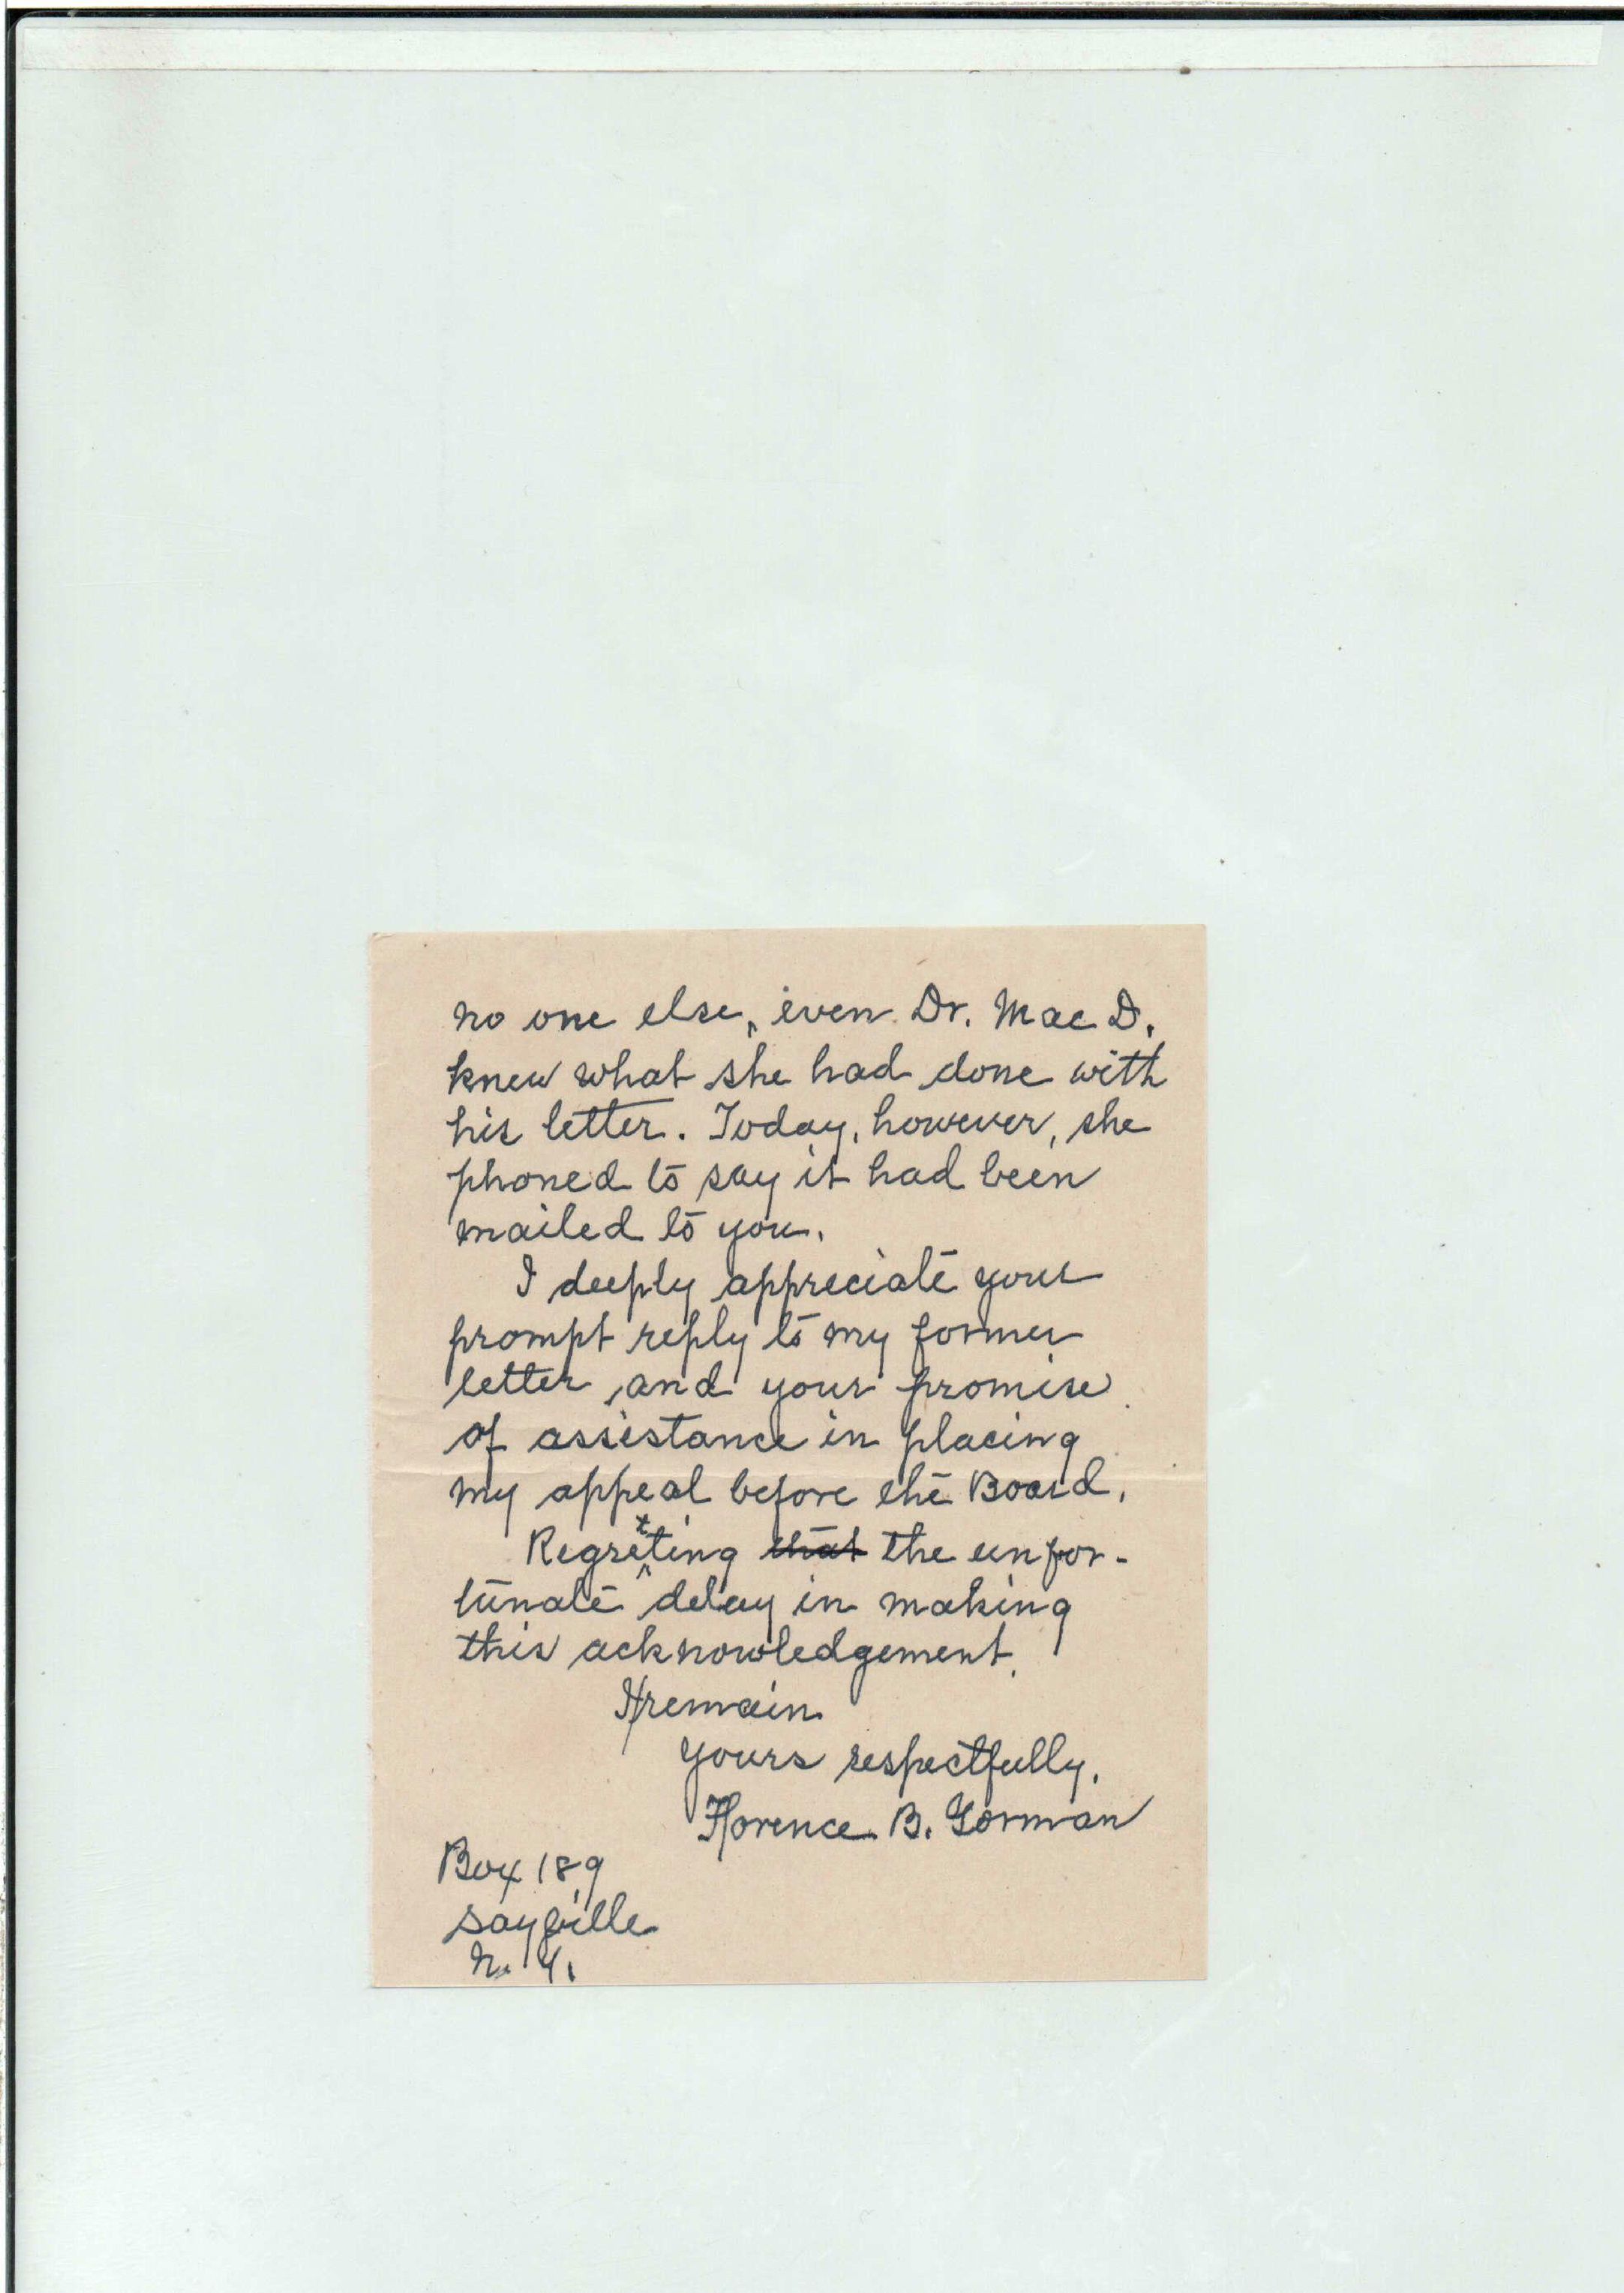 no one else, even Dr. Mac D.
knew what she had done with
his letter. Today, however, she
phoned to say it had been
mailed to you.
I deeply appreciate your
prompt reply to my former
letter and your promise
of assistance in placing
my appeal before the Board.
Regretting that the unfor-
tunate delay in making
this acknowledgement.
I remain
yours respectfully.
Florence B. Gorman
Box 189
Sayville
N. Y.